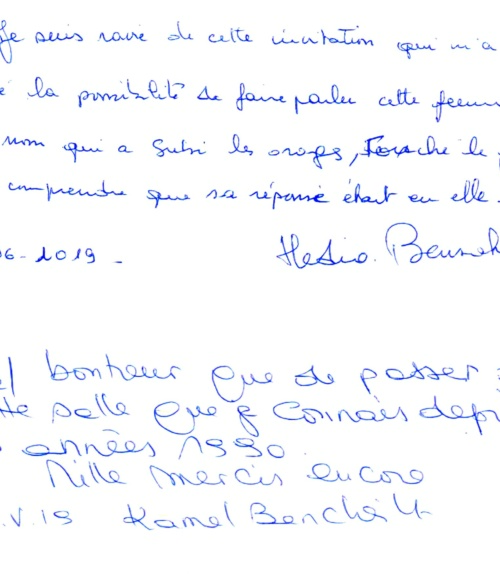 Je suis ravie de cette invitation qui m'a
la possibilité de faire parler cette femme
nom qui a subi les orages, le
comprendre que sa réponse était en elle.
06-2019-
bonheur que de passer
salle que je connais depu
années 1990.
Mille mercis encore
.V.19 Kamel Bencheikh